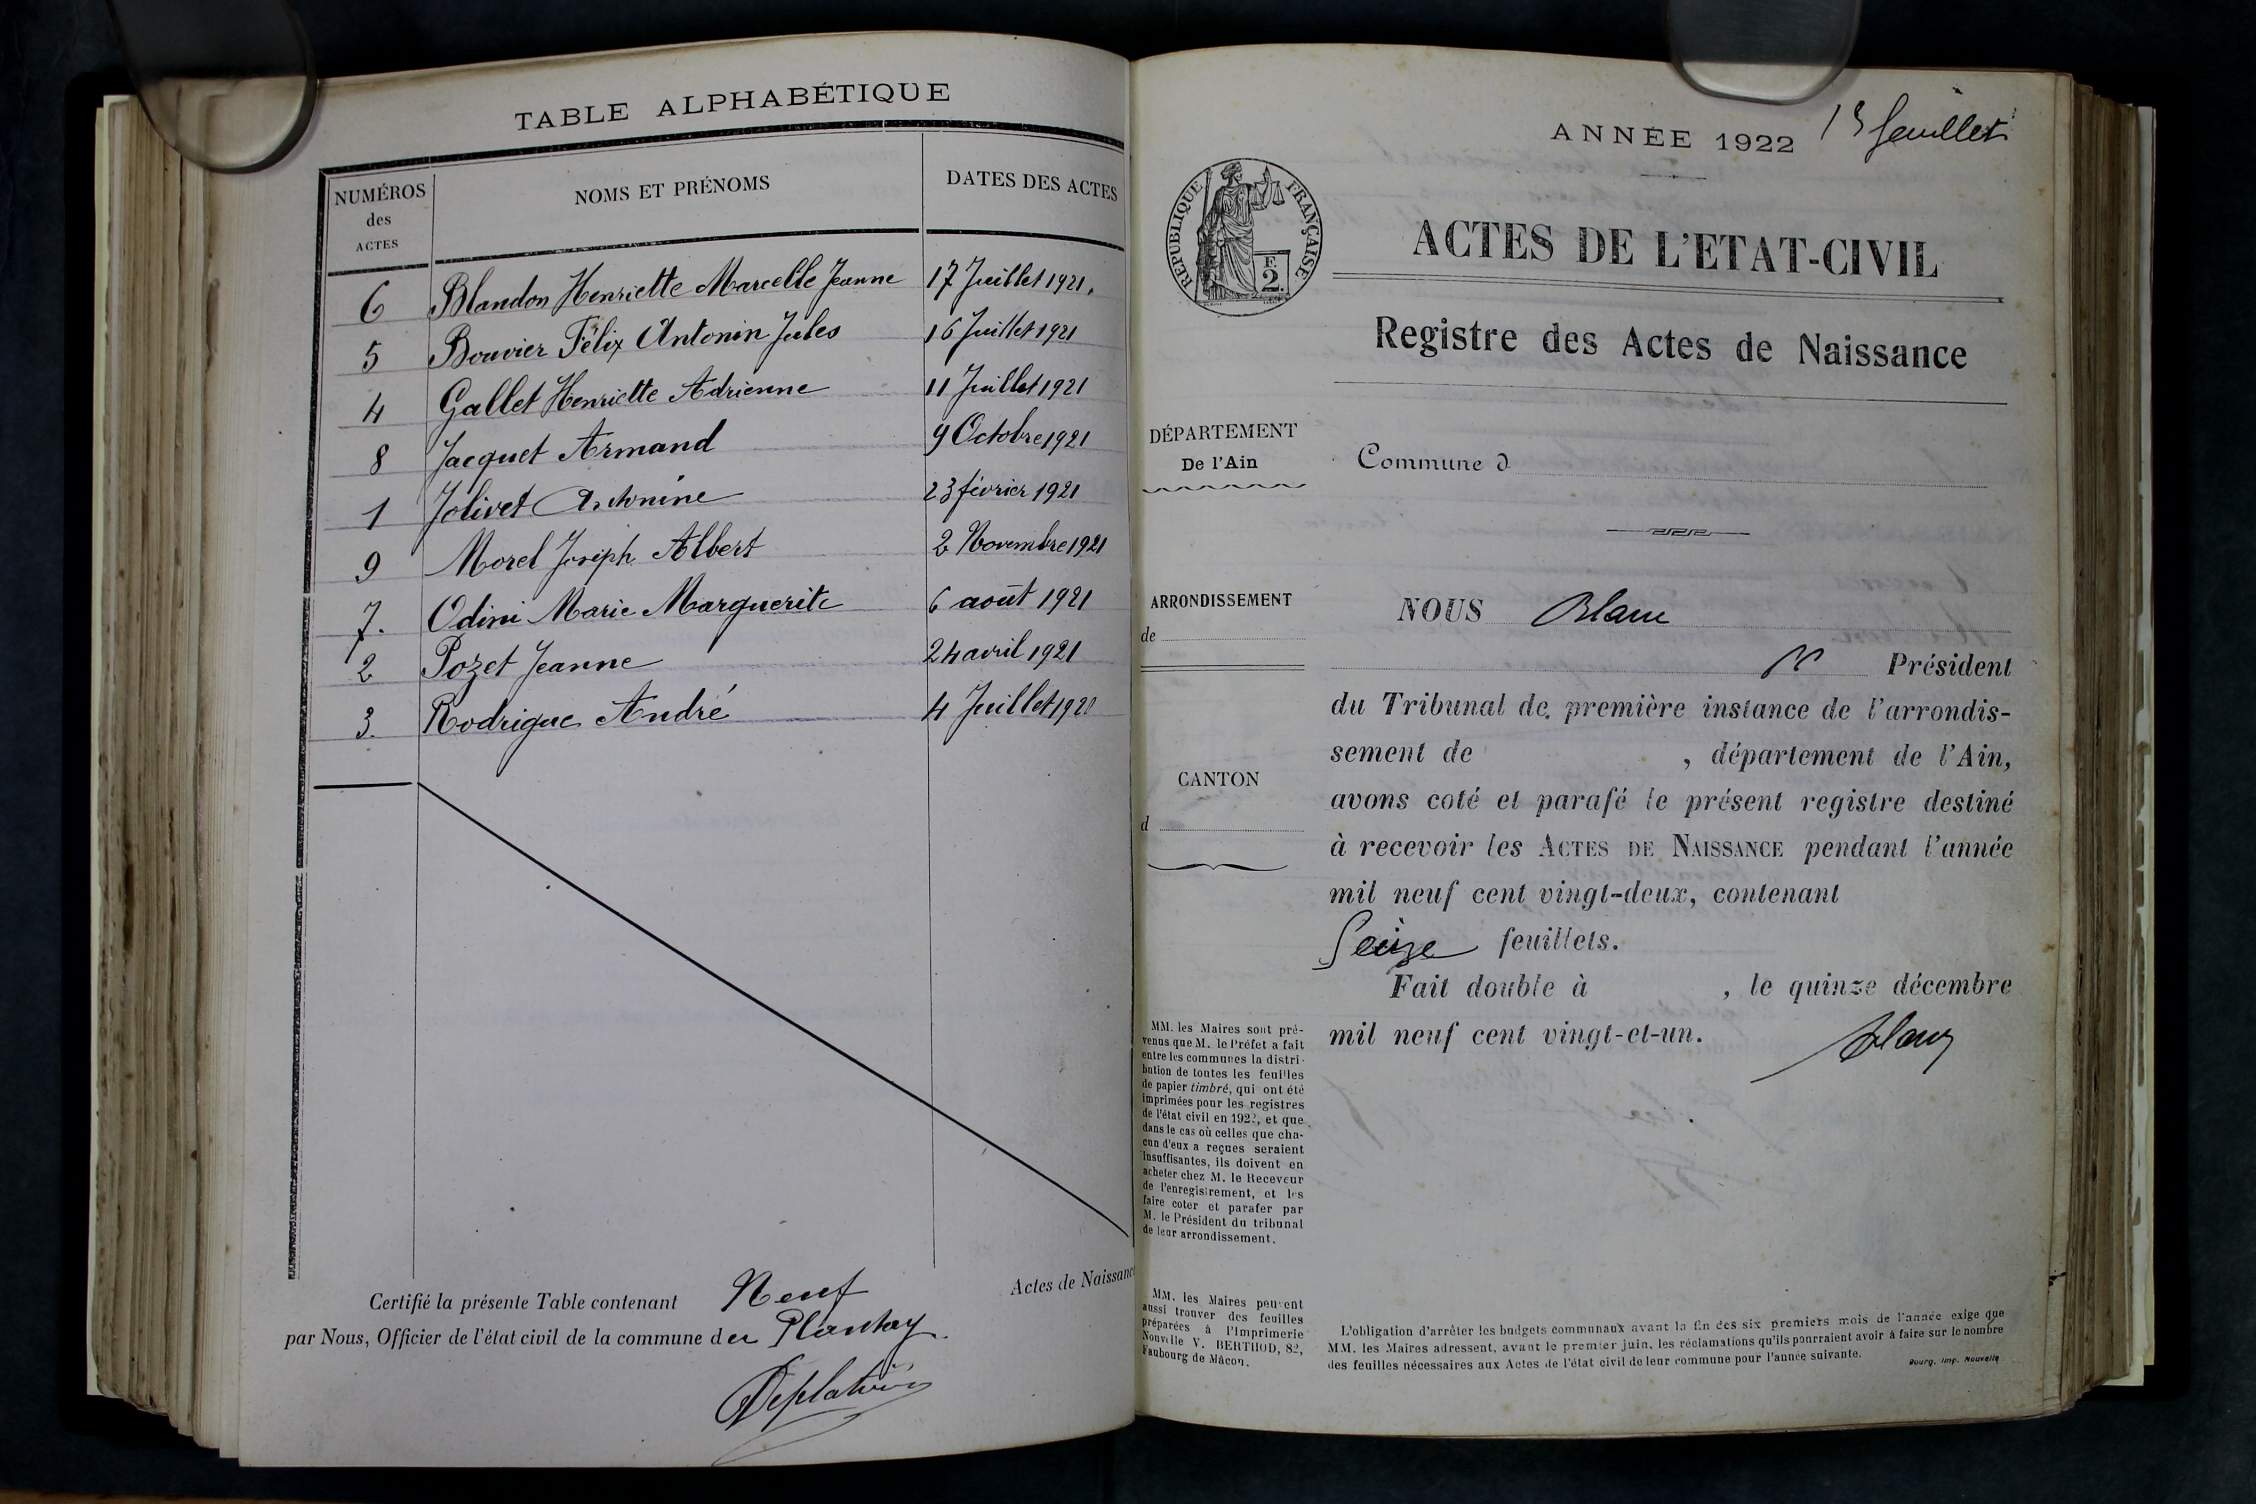 TABLE ALPHABÉTIQUE
NUMÉROS des ACTES NOMS ET PRÉNOMS DATES DES ACTES
6 Blandon Henriette Marcelle Jeanne 17 Juillet 1921.
5 Bouvier Félix Antonin Jules 16 Juillet 1921
4 Gallet Henriette Adrienne 11 Juillet 1921
8 Jacquet Armand 9 Octobre 1921
1 Jolivet Antonine 23 février 1921
9 Morel Joseph Albert 2 Novembre 1921
7. Odini Marie Marguerite 6 août 1921
2 Pozet Jeanne 24 avril 1921
3. Rodrigue André 4 Juillet 1921
Certifié la présente Table contenant Neuf Actes de Naissance
par Nous, Officier de l'état civil de la commune du Plantay.
ANNÉE 1922
feuillets
RÉPUBLIQUE FRANÇAISE
2
ACTES DE L'ETAT-CIVIL
Registre des Actes de Naissance
DÉPARTEMENT
De l'Ain
Commune d
ARRONDISSEMENT
de
CANTON
d
NOUS Blanc
Président
du Tribunal de première instance de l'arrondis-
sement de , département de l'Ain,
avons coté et parafé le présent registre destiné
à recevoir les ACTES DE NAISSANCE pendant l'année
mil neuf cent vingt-deux, contenant
Seize feuillets.
Fait double à , le quinze décembre
mil neuf cent vingt-et-un.
Blanc
MM. les Maires sont pré-
venus que M. le Préfet a fait
entre les communes la distri-
bution de toutes les feuilles
de papier timbré, qui ont été
imprimées pour les registres
de l'état civil en 1922, et que
dans le cas où celles que cha-
cun d'eux a reçues seraient
insuffisantes, ils doivent en
acheter chez M. le Receveur
de l'enregistrement, et les
faire coter et parafer par
M. le Président du tribunal
de leur arrondissement.
MM. les Maires peuvent
aussi trouver des feuilles
préparées à l'Imprimerie
Nouvelle V. BERTHOD, 82,
Faubourg de Mâcon.
L'obligation d'arrêter les budgets communaux avant la fin des six premiers mois de l'année exige que
MM. les Maires adressent, avant le premier juin, les réclamations qu'ils pourraient avoir à faire sur le nombre
des feuilles nécessaires aux Actes de l'état civil de leur commune pour l'année suivante.
Bourg. Imp. Nouvelle